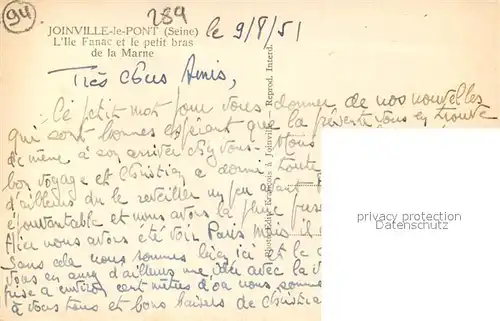 94
289
JOINVILLE-le-PONT (Seine)
L'Ile Fanac et le petit bras
de la Marne
le 9/8/51
Très chers Amis,
Ce petit mot pour vous donner de nos nouvelles
qui sont bonnes espérant que la présente vous en trouve
de même à son arrivée chez vous. Nous
bon voyage et Christian a dormi toute
d'ailleurs du le réveiller un peu avant
épouvantable et nous avons la pluie
Hier nous avons été voir Paris mais il
Sans cela nous sommes bien ici et le
vous en aurez d'ailleurs une idée avec la
prise à environ cent mètres d'où nous sommes
à vous tous et bons baisers de Christian
Reprod. Interd.
privacy protection